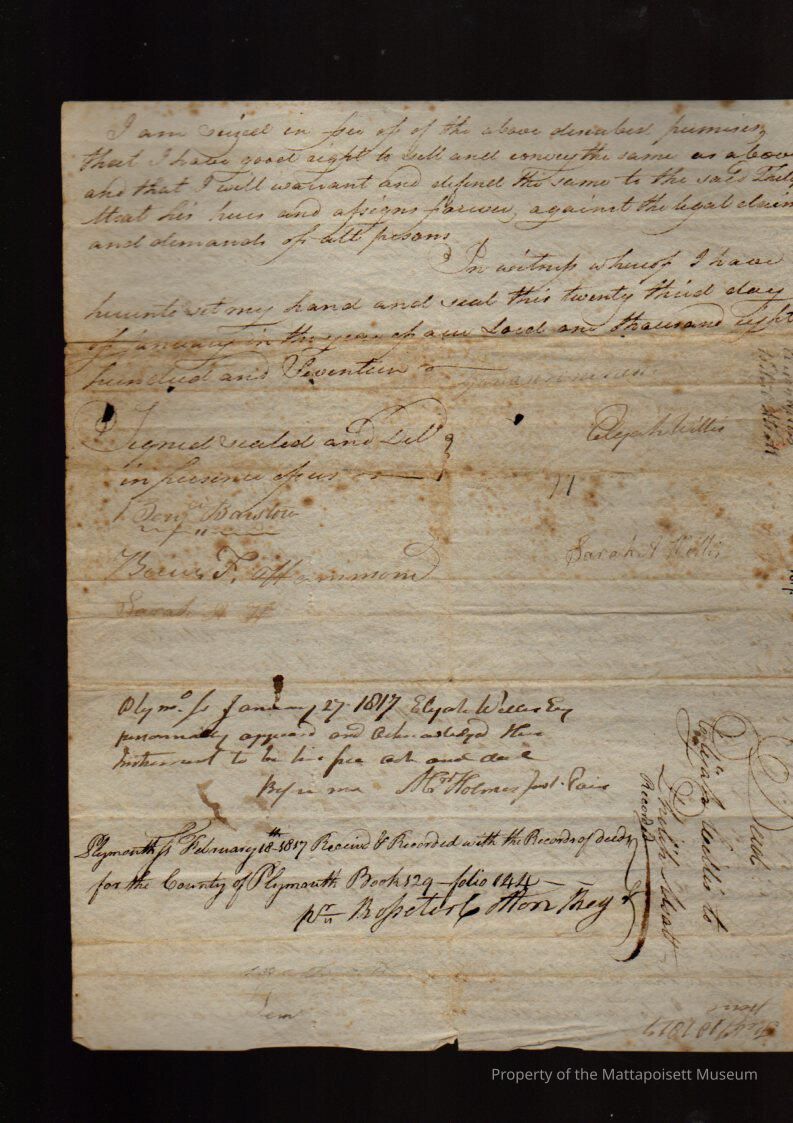 I am seized in fee of of the above described premises,
that I have good right to sell and convey the same as above
and that I will warrant and defend the same to the said
that his heirs and assigns forever, against the legal claim
and demands of all persons
In witness whereof I have
hereunto set my hand and seal this twenty third day
of January in the year of our Lord one thousand eight
hundred and Seventeen
Signed sealed and Del
in presence of us
Elijah Willis
Benj Barstow
Sarah A Willis
F. Hammond
Sarah
Plymo ss January 27. 1817 Elijah Willis Esq
personally appeared and acknowledged this
Instrument to be his free act and deed
Before me Holmes Just. Pacis
Plymouth ss February 18th 1817 Received & Recorded with the Records of deeds
for the County of Plymouth Book 129 folio 144
pr Rosseter Cotton Regr
Deed
Elijah Willis to
Recorded
1817
Property of the Mattapoisett Museum